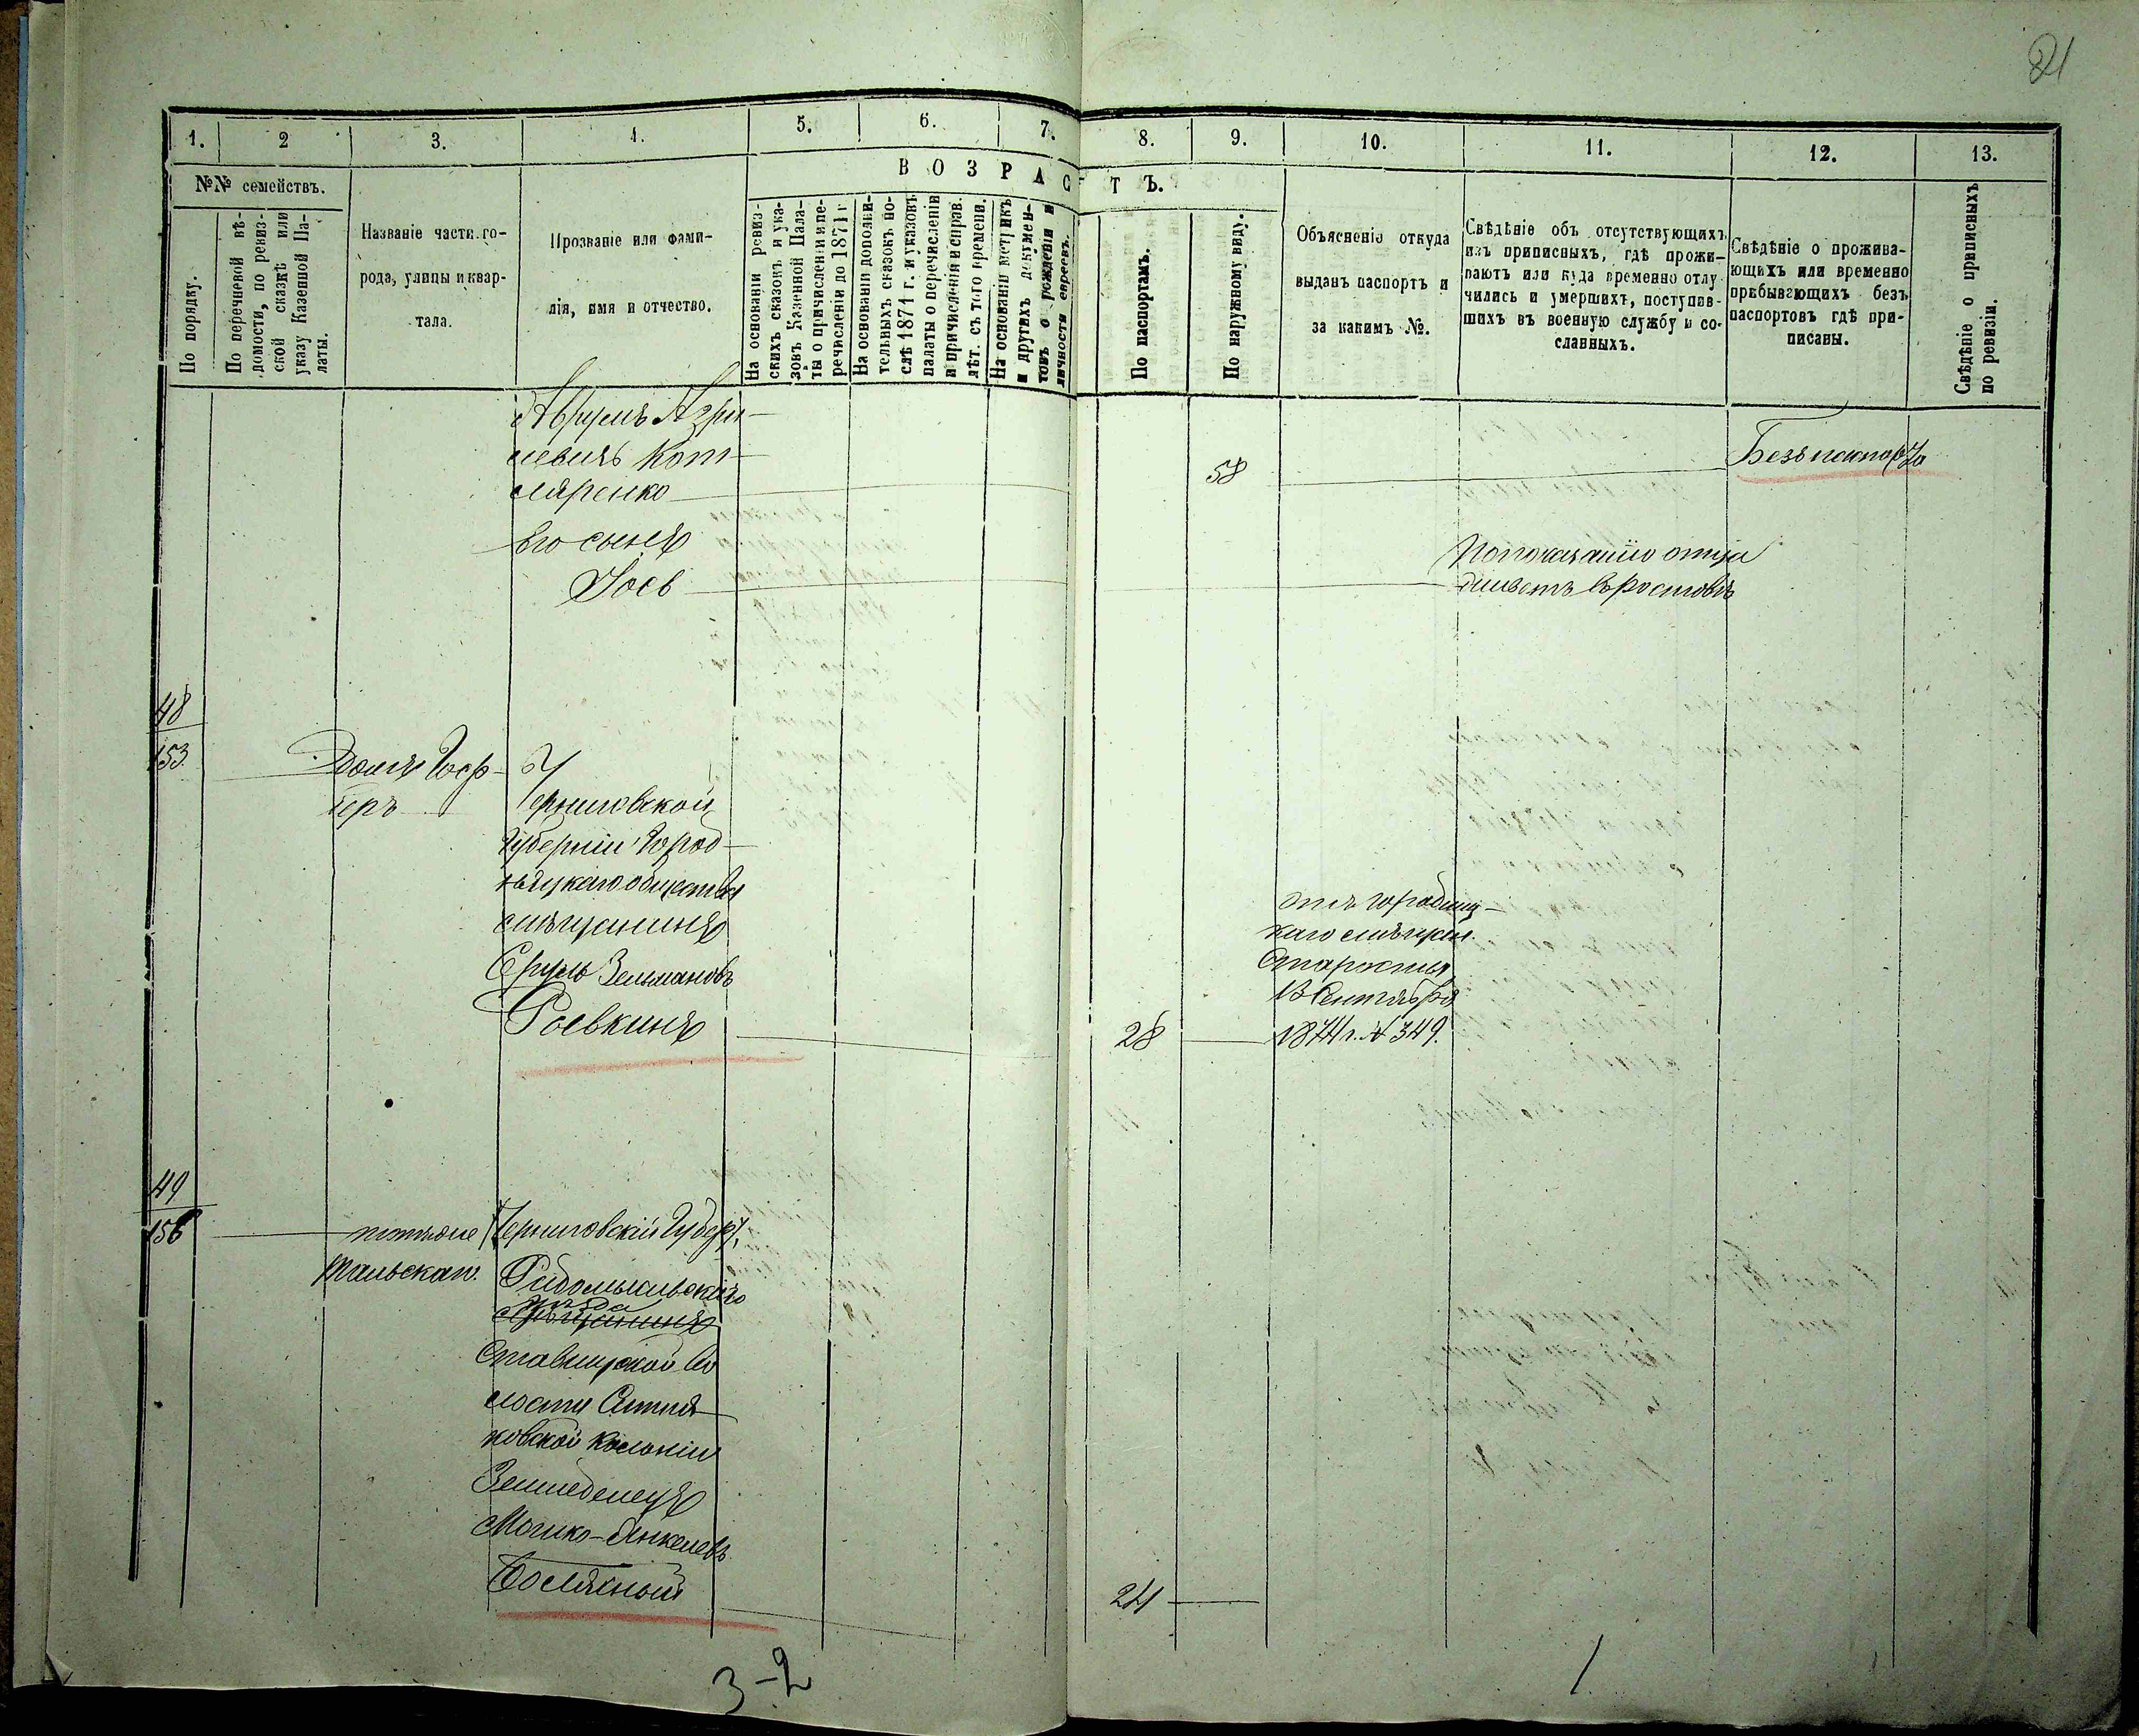 21
1. 2 3. 4. 5. 6. 7. 8. 9. 10. 11. 12. 13.
№№ семействъ.
В О З Р А С Т Ъ.
По порядку.
По перечневой вѣ-
домости, по ревиз-
ской сказкѣ или
указу Казенной Па-
латы.
Названіе части го-
рода, улицы и квар-
тала.
Прозваніе или фами-
лія, имя и отчество.
На основаніи ревиз-
скихъ сказокъ и ука-
зовъ Казенной Пала-
ты о причисленіи и пе-
речисленіи до 1871 г
На основаніи дополни-
тельныхъ сказокъ по-
слѣ 1871 г. и указовъ
палаты о перечисленіи
и причисленіи и справ.
лѣт. съ того времени.
На основаніи метрикъ
и другихъ докумен-
товъ о рожденіи и
личности евреевъ.
По паспортамъ.
По наружному виду.
Объясненіе откуда
выданъ паспортъ и
за какимъ №.
Свѣдѣніе объ отсутствующихъ
изъ приписныхъ, гдѣ прожи-
ваютъ или куда временно отлу
чились и умершихъ, поступив-
шихъ въ военную службу и со-
сланныхъ.
Свѣдѣніе о прожива-
ющихъ или временно
прибывающихъ безъ
паспортовъ гдѣ при-
писаны.
Свѣдѣніе о приписныхъ
по ревизіи.
Аврумъ Азри
левичъ Кот-
ляренко
58
Безъ паспорта
Его сынъ
Іось
По показанію отца
живетъ въ Ростовѣ
48
153
Домъ
Черниговской
Губерніи Город-
ницкаго общества
мѣщанинъ
Сруль Зельмановъ
Роевкинъ
28
отъ Городниц-
каго мѣщан.
Старосты
13 Сентября
1874 г. № 349.
49
156
Тальскаго.
Черниговскій Губер.,
Радомысльскаго
уѣзда
мѣщанинъ
Ставищской Во
лости
ковской Колоніи
Земледелецъ
Мошко-Янкелевъ
24
3-2
1